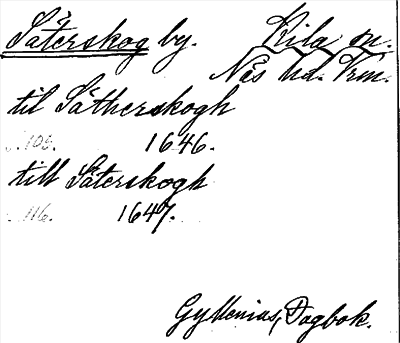 Såterskog by. Kila sn.
Näs hd. Vrm.
til Såtherskogh
s. 105. 1646.
till Såterskogh
s. 116. 1647.
Gyllenius, Dagbok.